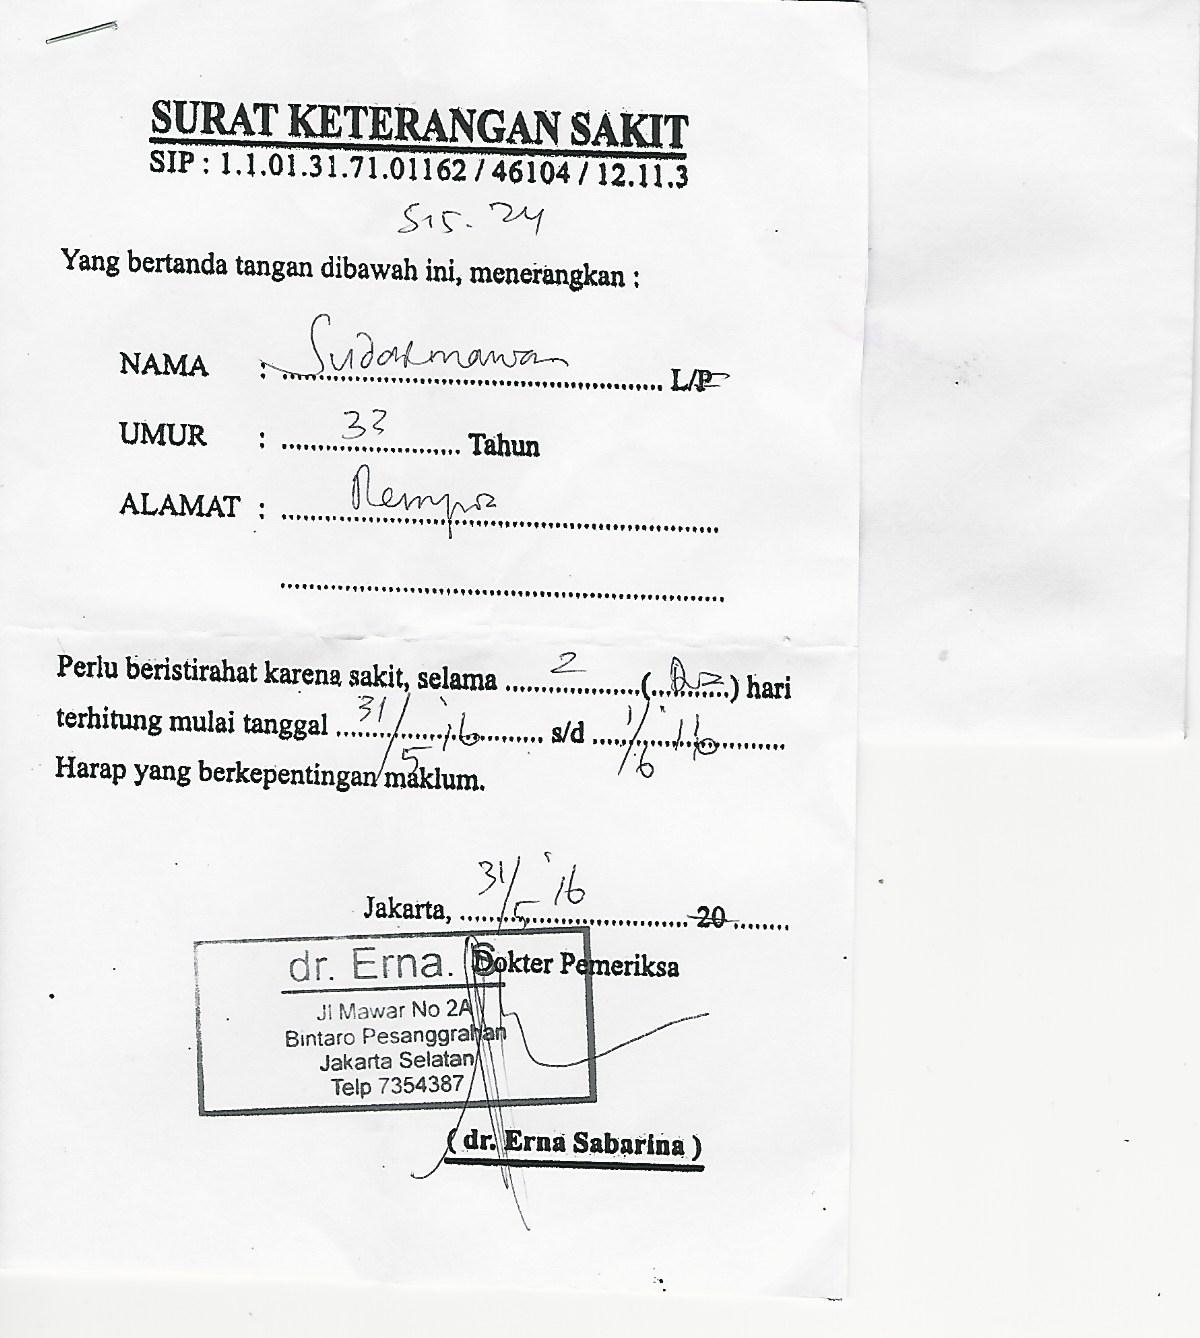 SURAT KETERANGAN SAKIT
SIP : 1.1.01.31.71.01162 / 46104 / 12.11.3
Yang bertanda tangan dibawah ini, menerangkan :
NAMA : Sudarmawan L/P
UMUR : 33 Tahun
ALAMAT : Rempoa
Perlu beristirahat karena sakit, selama 2 (Dua) hari
terhitung mulai tanggal 31/5 '16 s/d 1/6 '16
Harap yang berkepentingan maklum.
Jakarta, 31/5 '16 20
Dokter Pemeriksa
dr. Erna. S
Jl Mawar No 2A
Bintaro Pesanggrahan
Jakarta Selatan
Telp 7354387
( dr. Erna Sabarina )